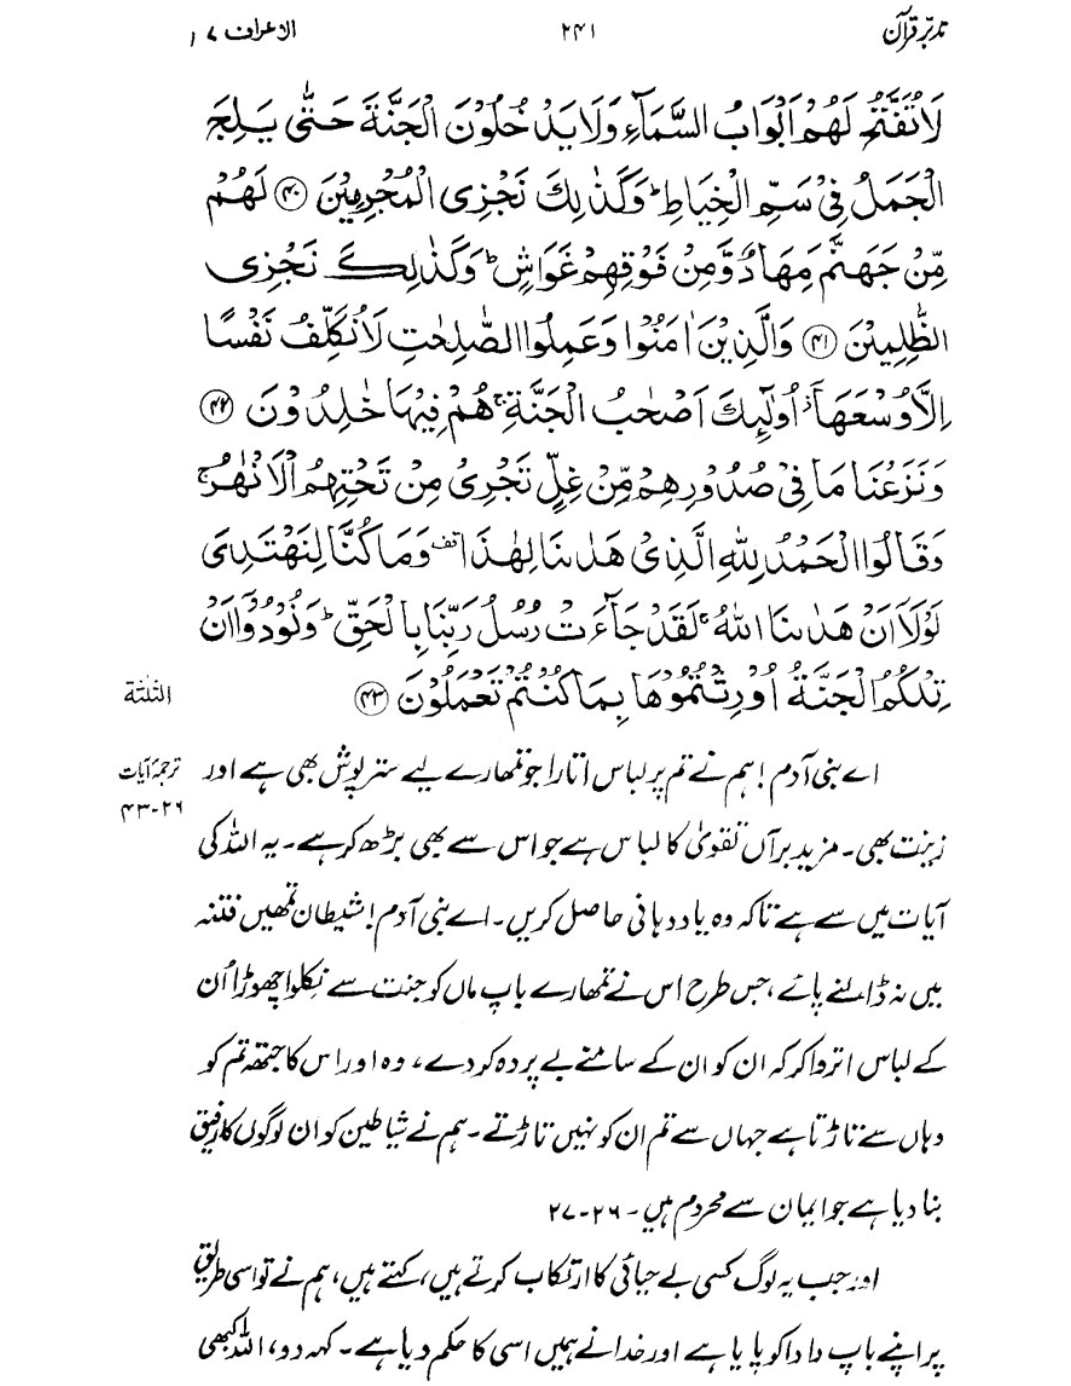 تدبّرِ قرآن ۲۴۱ الاعراف ۷
لَا تُفَتَّحُ لَهُمْ اَبْوَابُ السَّمَآءِ وَلَا يَدْخُلُوْنَ الْجَنَّةَ حَتّٰى يَلِجَ
الْجَمَلُ فِيْ سَمِّ الْخِيَاطِ ؕ وَكَذٰلِكَ نَجْزِى الْمُجْرِمِيْنَ ﴿۴۰﴾ لَهُمْ
مِّنْ جَهَنَّمَ مِهَادٌ وَّمِنْ فَوْقِهِمْ غَوَاشٍ ؕ وَكَذٰلِكَ نَجْزِى
الظّٰلِمِيْنَ ﴿۴۱﴾ وَالَّذِيْنَ اٰمَنُوْا وَعَمِلُوا الصّٰلِحٰتِ لَا نُكَلِّفُ نَفْسًا
اِلَّا وُسْعَهَاۤ ۫ اُولٰٓئِكَ اَصْحٰبُ الْجَنَّةِ ۚ هُمْ فِيْهَا خٰلِدُوْنَ ﴿۴۲﴾
وَنَزَعْنَا مَا فِيْ صُدُوْرِهِمْ مِّنْ غِلٍّ تَجْرِىْ مِنْ تَحْتِهِمُ الْاَنْهٰرُ ۚ
وَقَالُوا الْحَمْدُ لِلّٰهِ الَّذِىْ هَدٰىنَا لِهٰذَا قف وَمَا كُنَّا لِنَهْتَدِىَ
لَوْلَاۤ اَنْ هَدٰىنَا اللّٰهُ ۚ لَقَدْ جَآءَتْ رُسُلُ رَبِّنَا بِالْحَقِّ ؕ وَنُوْدُوْۤا اَنْ
تِلْكُمُ الْجَنَّةُ اُوْرِثْتُمُوْهَا بِمَا كُنْتُمْ تَعْمَلُوْنَ ﴿۴۳﴾
الثلٰثة
اے بنی آدم! ہم نے تم پر لباس اتارا جو تمھارے لیے ستر پوش بھی ہے اور
ترجمۂ آیات
۲۶-۴۳
زینت بھی۔ مزید برآں تقویٰ کا لباس ہے جو اس سے بھی بڑھ کر ہے۔ یہ اللہ کی
آیات میں سے ہے تاکہ وہ یاددہانی حاصل کریں۔ اے بنی آدم! شیطان تمھیں فتنہ
میں نہ ڈالنے پائے، جس طرح اس نے تمھارے باپ ماں کو جنت سے نکلوا چھوڑا اُن
کے لباس اتروا کر کہ ان کو ان کے سامنے بے پردہ کر دے، وہ اور اس کا جتھہ تم کو
وہاں سے تاڑتا ہے جہاں سے تم ان کو نہیں تاڑتے۔ ہم نے شیاطین کو ان لوگوں کا رفیق
بنا دیا ہے جو ایمان سے محروم ہیں۔ ۲۶-۲۷
اور جب یہ لوگ کسی بے حیائی کا ارتکاب کرتے ہیں، کہتے ہیں، ہم نے تو اسی طریق
پر اپنے باپ دادا کو پایا ہے اور خدا نے ہمیں اسی کا حکم دیا ہے۔ کہہ دو، اللہ کبھی